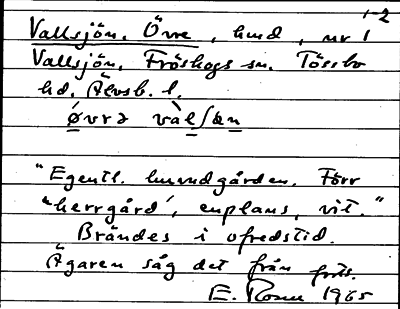 1-2
Vallsjön, Övre, hmd, nr 1
Vallsjön, Fröskogs sn. Tössbo
hd. Älvsb. l.
øvrə vàlʃøn
"Egentl. huvudgården. Förr
"herrgård', enplans, vit."
Brändes i ofredstid.
Ägaren såg det från
E. Rosen 1965